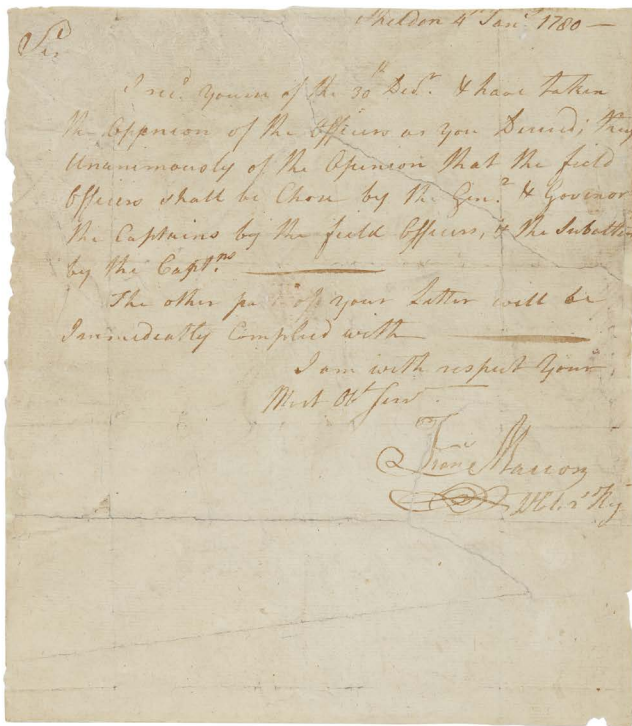 Sheldon 4th Janr. 1780 —
Sir
I recd. youers of the 30th Decr. & have taken
the Oppnion of the Officers as you Desired; they
Unanimously of the Opinion that the field
Officers shall be Chose by the Genl. & Govenor
the Captains by the field Officers, & the Subaltn
by the Captns.
The other part of your Letter will be
Immediatly Complied with
I am with respect Your
Most Obt Serv.
Frans. Marion